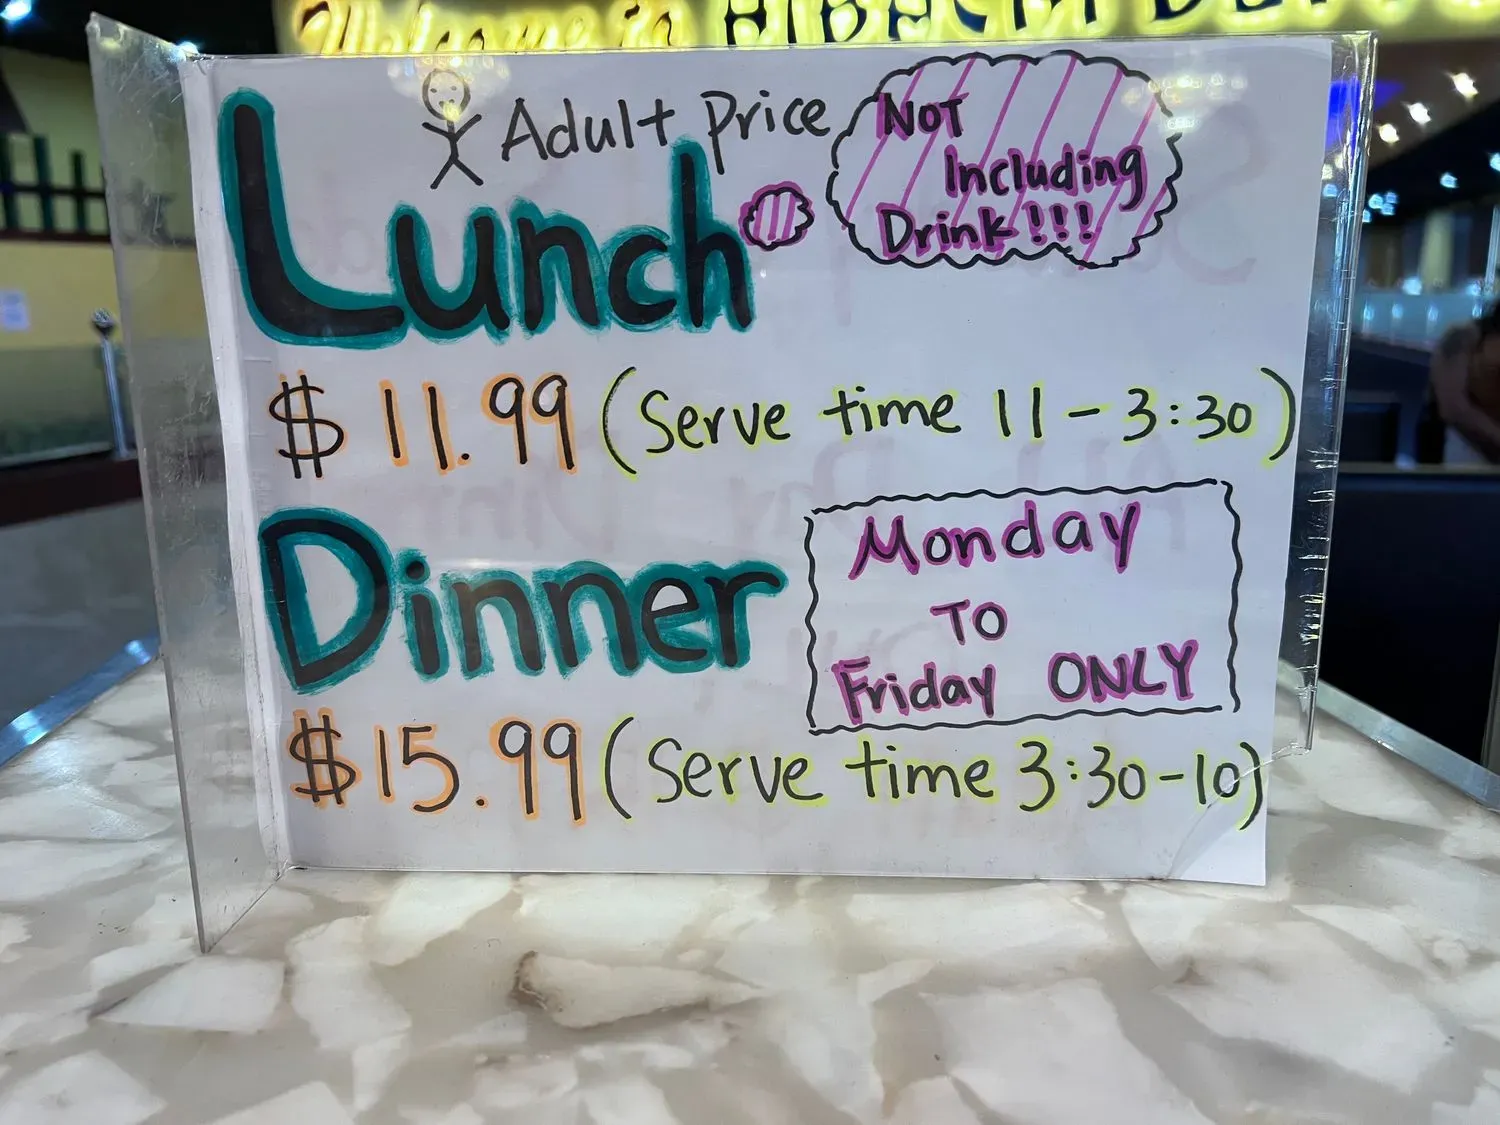 Welcome to HIBACHI
Adult Price
Lunch
Not
Including
Drink!!!
$ 11.99 (Serve time 11-3:30)
Dinner
Monday
To
Friday ONLY
$15.99 (Serve time 3:30-10)